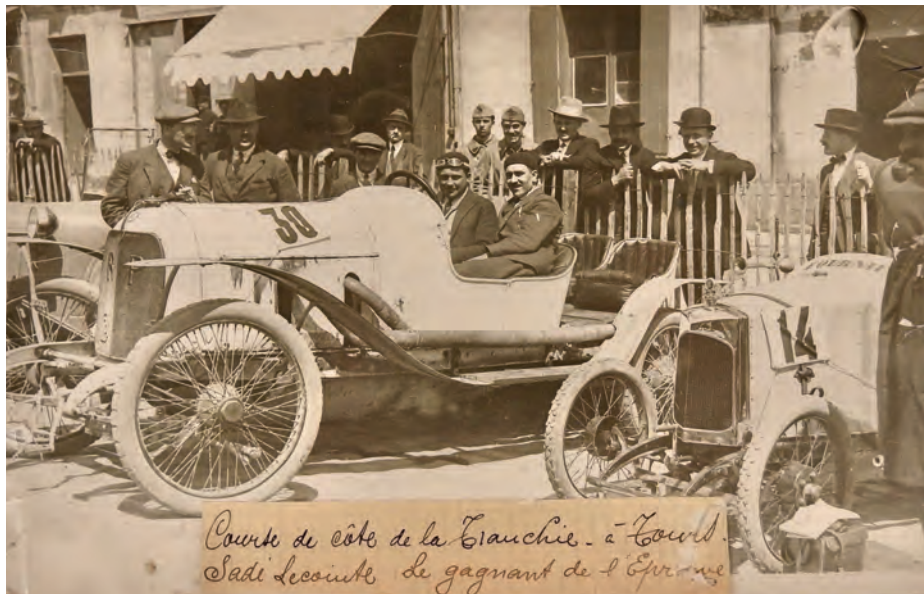 30
14
Course de côte de la Tranchie - à Tours.
Sadi Lecointe le gagnant de l'Epreuve